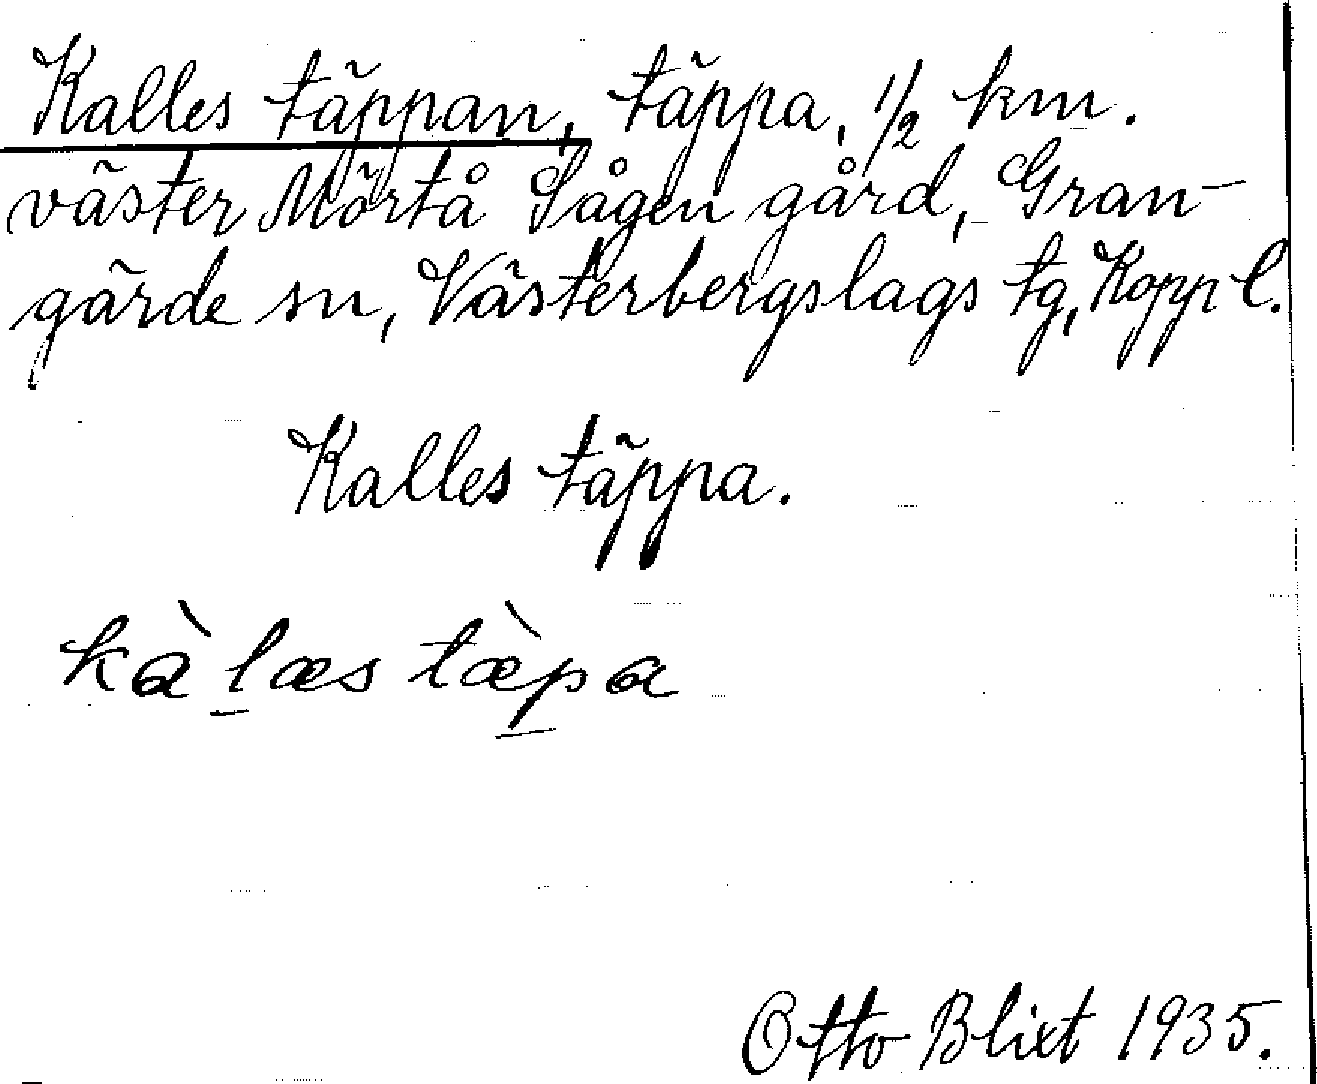 Kalles täppan, täppa, 1/2 km.
väster Mörtå Sågen gård, Gran-
gärde sn, Västerbergslags tg, Kopp l.
Kalles täppa.
kàl̲æs tæ̀p̲a
Otto Blixt 1935.